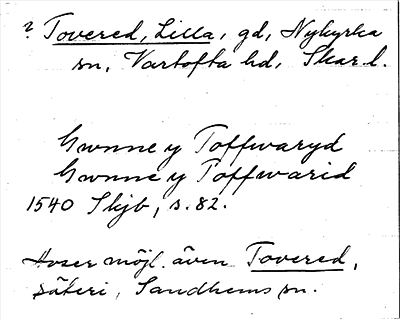 ? Tovered, Lilla, gd, Nykyrka
sn, Vartofta hd, Skar.l.
Gwnne y Toffwaryd
Gwnne y Toffwarid
1540 Skjb, s. 82.
Avser möjl. även Tovered,
säteri, Sandhems sn.